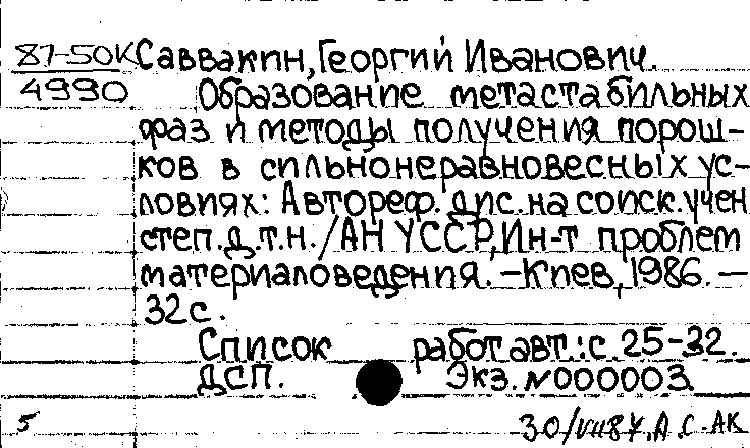 87-50К Саввакин, Георгий Иванович.
4990 Образование метастабильных
фаз и методы получения порош-
ков в сильнонеравновесных ус-
ловиях: Автореф. дис. на соиск. учен
степ. д.т.н. / АН УССР, Ин-т проблем
материаловедения. – Киев, 1986. –
32 с.
Список работ авт.: с. 25-32.
ДСП. Экз. N000003
5 30/VII87, А.С. АК